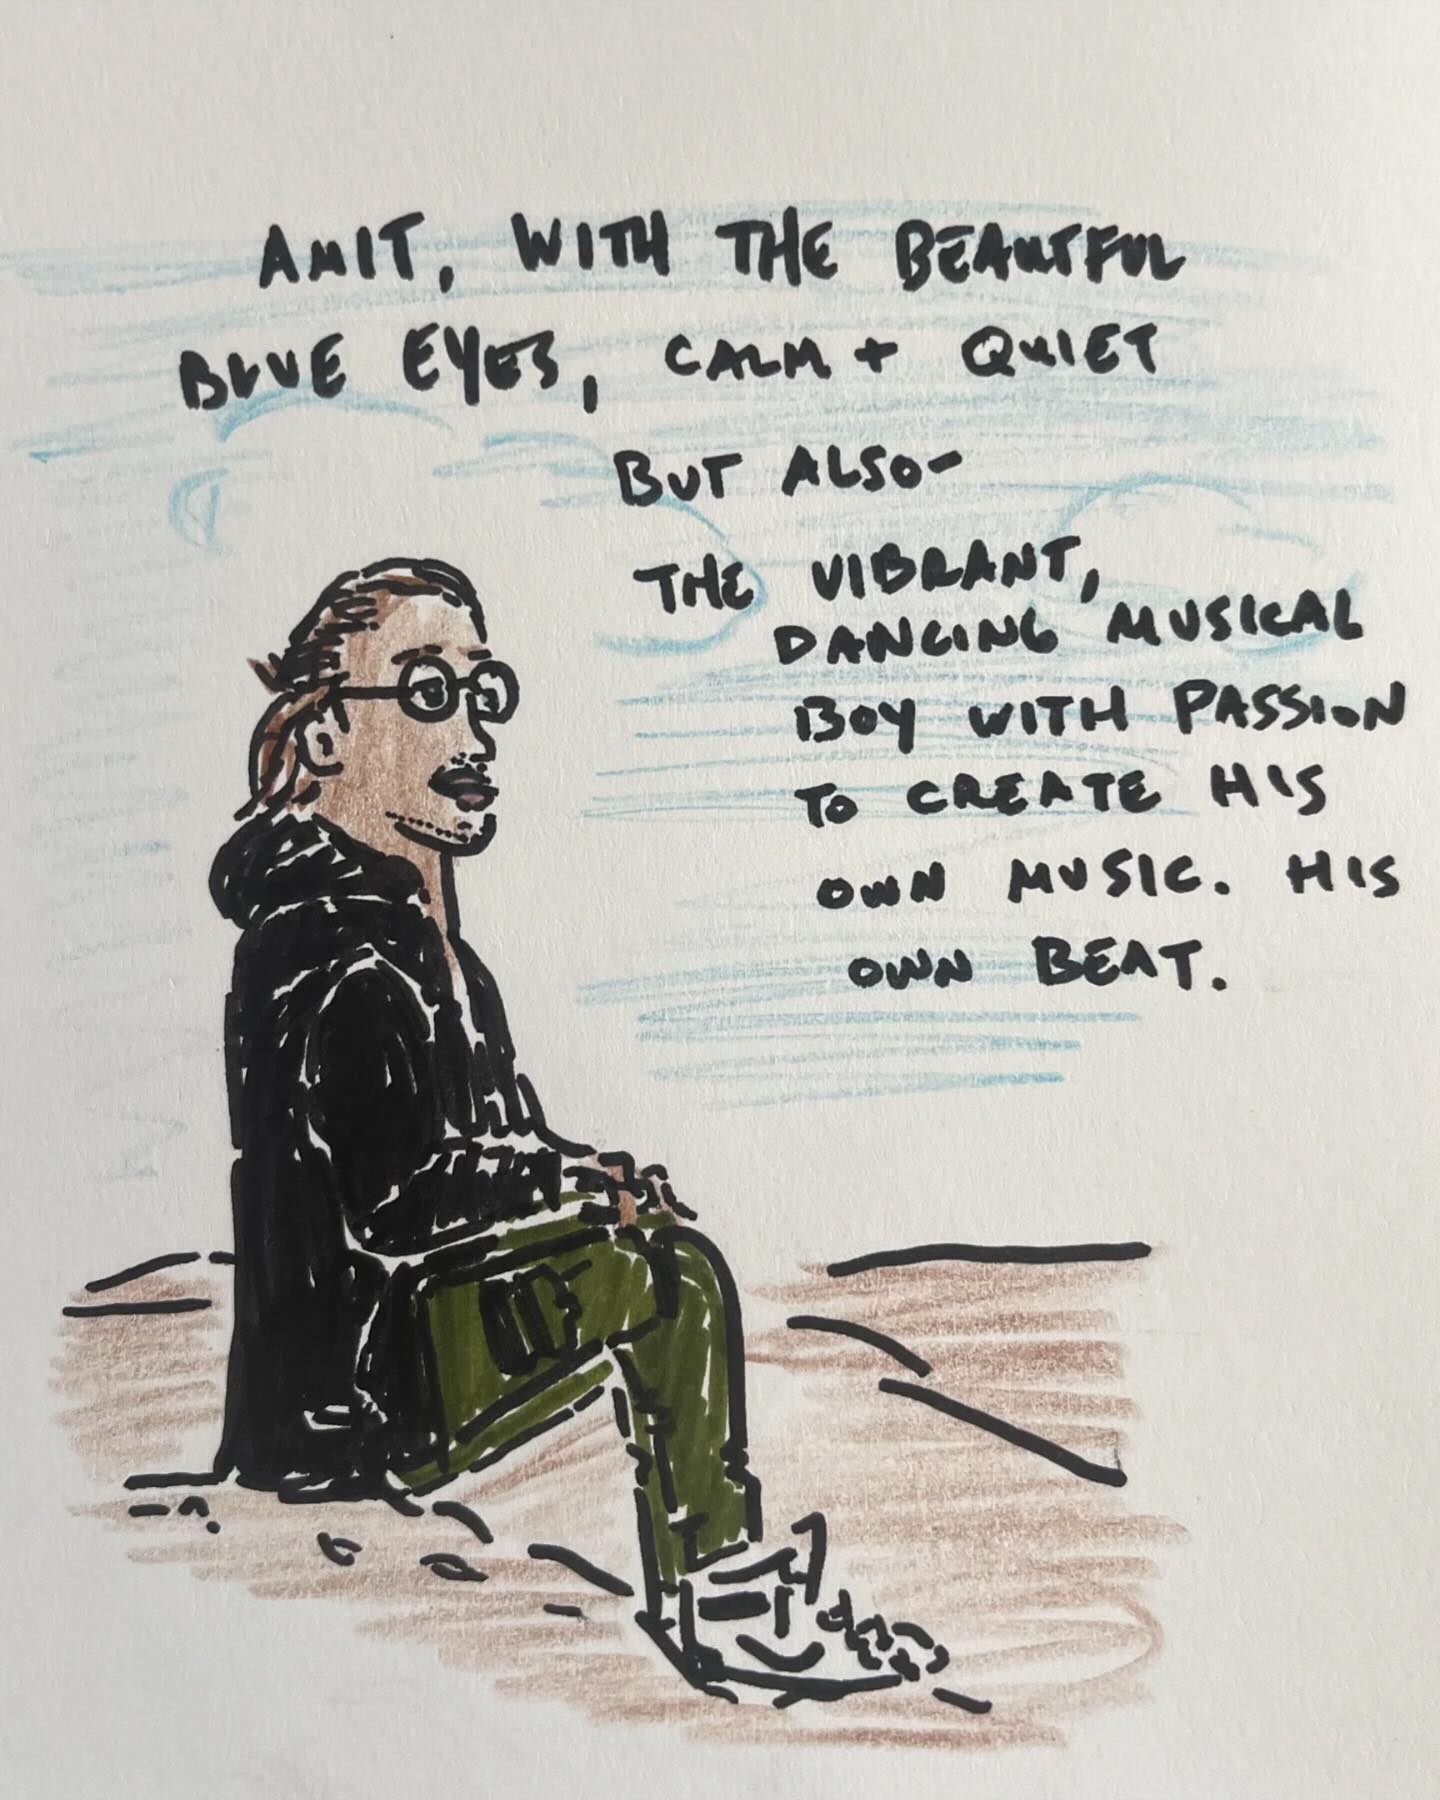 AMIT, WITH THE BEAUTFUL
BLUE EYES, CALM + QUIET
BUT ALSO-
THE VIBRANT,
DANCING MUSICAL
BOY WITH PASSION
TO CREATE HIS
OWN MUSIC. HIS
OWN BEAT.